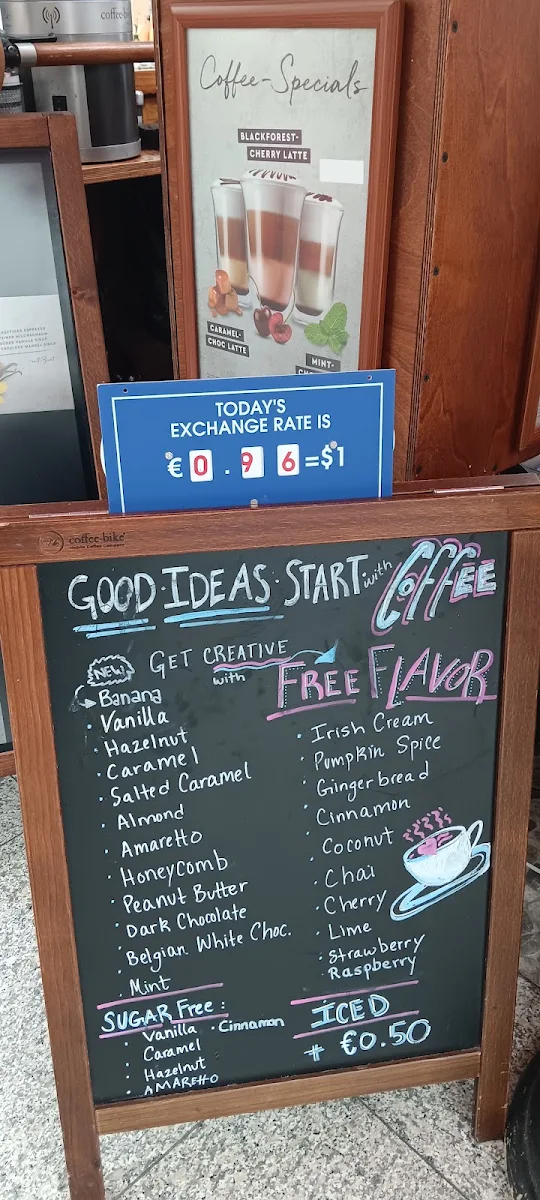 coffee-b
Coffee-Specials
BLACKFOREST-
CHERRY LATTE
CARAMEL-
CHOC LATTE
MINT-
TODAY'S
EXCHANGE RATE IS
€ 0.96=$1
coffee-bike
GOOD·IDEAS·START with COFFEE
NEW! GET CREATIVE
with FREE FLAVOR
Banana
· Vanilla
· Hazelnut
· Caramel
· Salted Caramel
· Almond
· Amaretto
· Honeycomb
· Peanut Butter
· Dark Chocolate
· Belgian White Choc.
· Mint
· Irish Cream
· Pumpkin Spice
· Gingerbread
· Cinnamon
· Coconut
· Chai
· Cherry
· Lime
· Strawberry
Raspberry
SUGAR Free:
· Vanilla · Cinnamon
· Caramel
· Hazelnut
· AMARETTO
ICED
+ €0.50